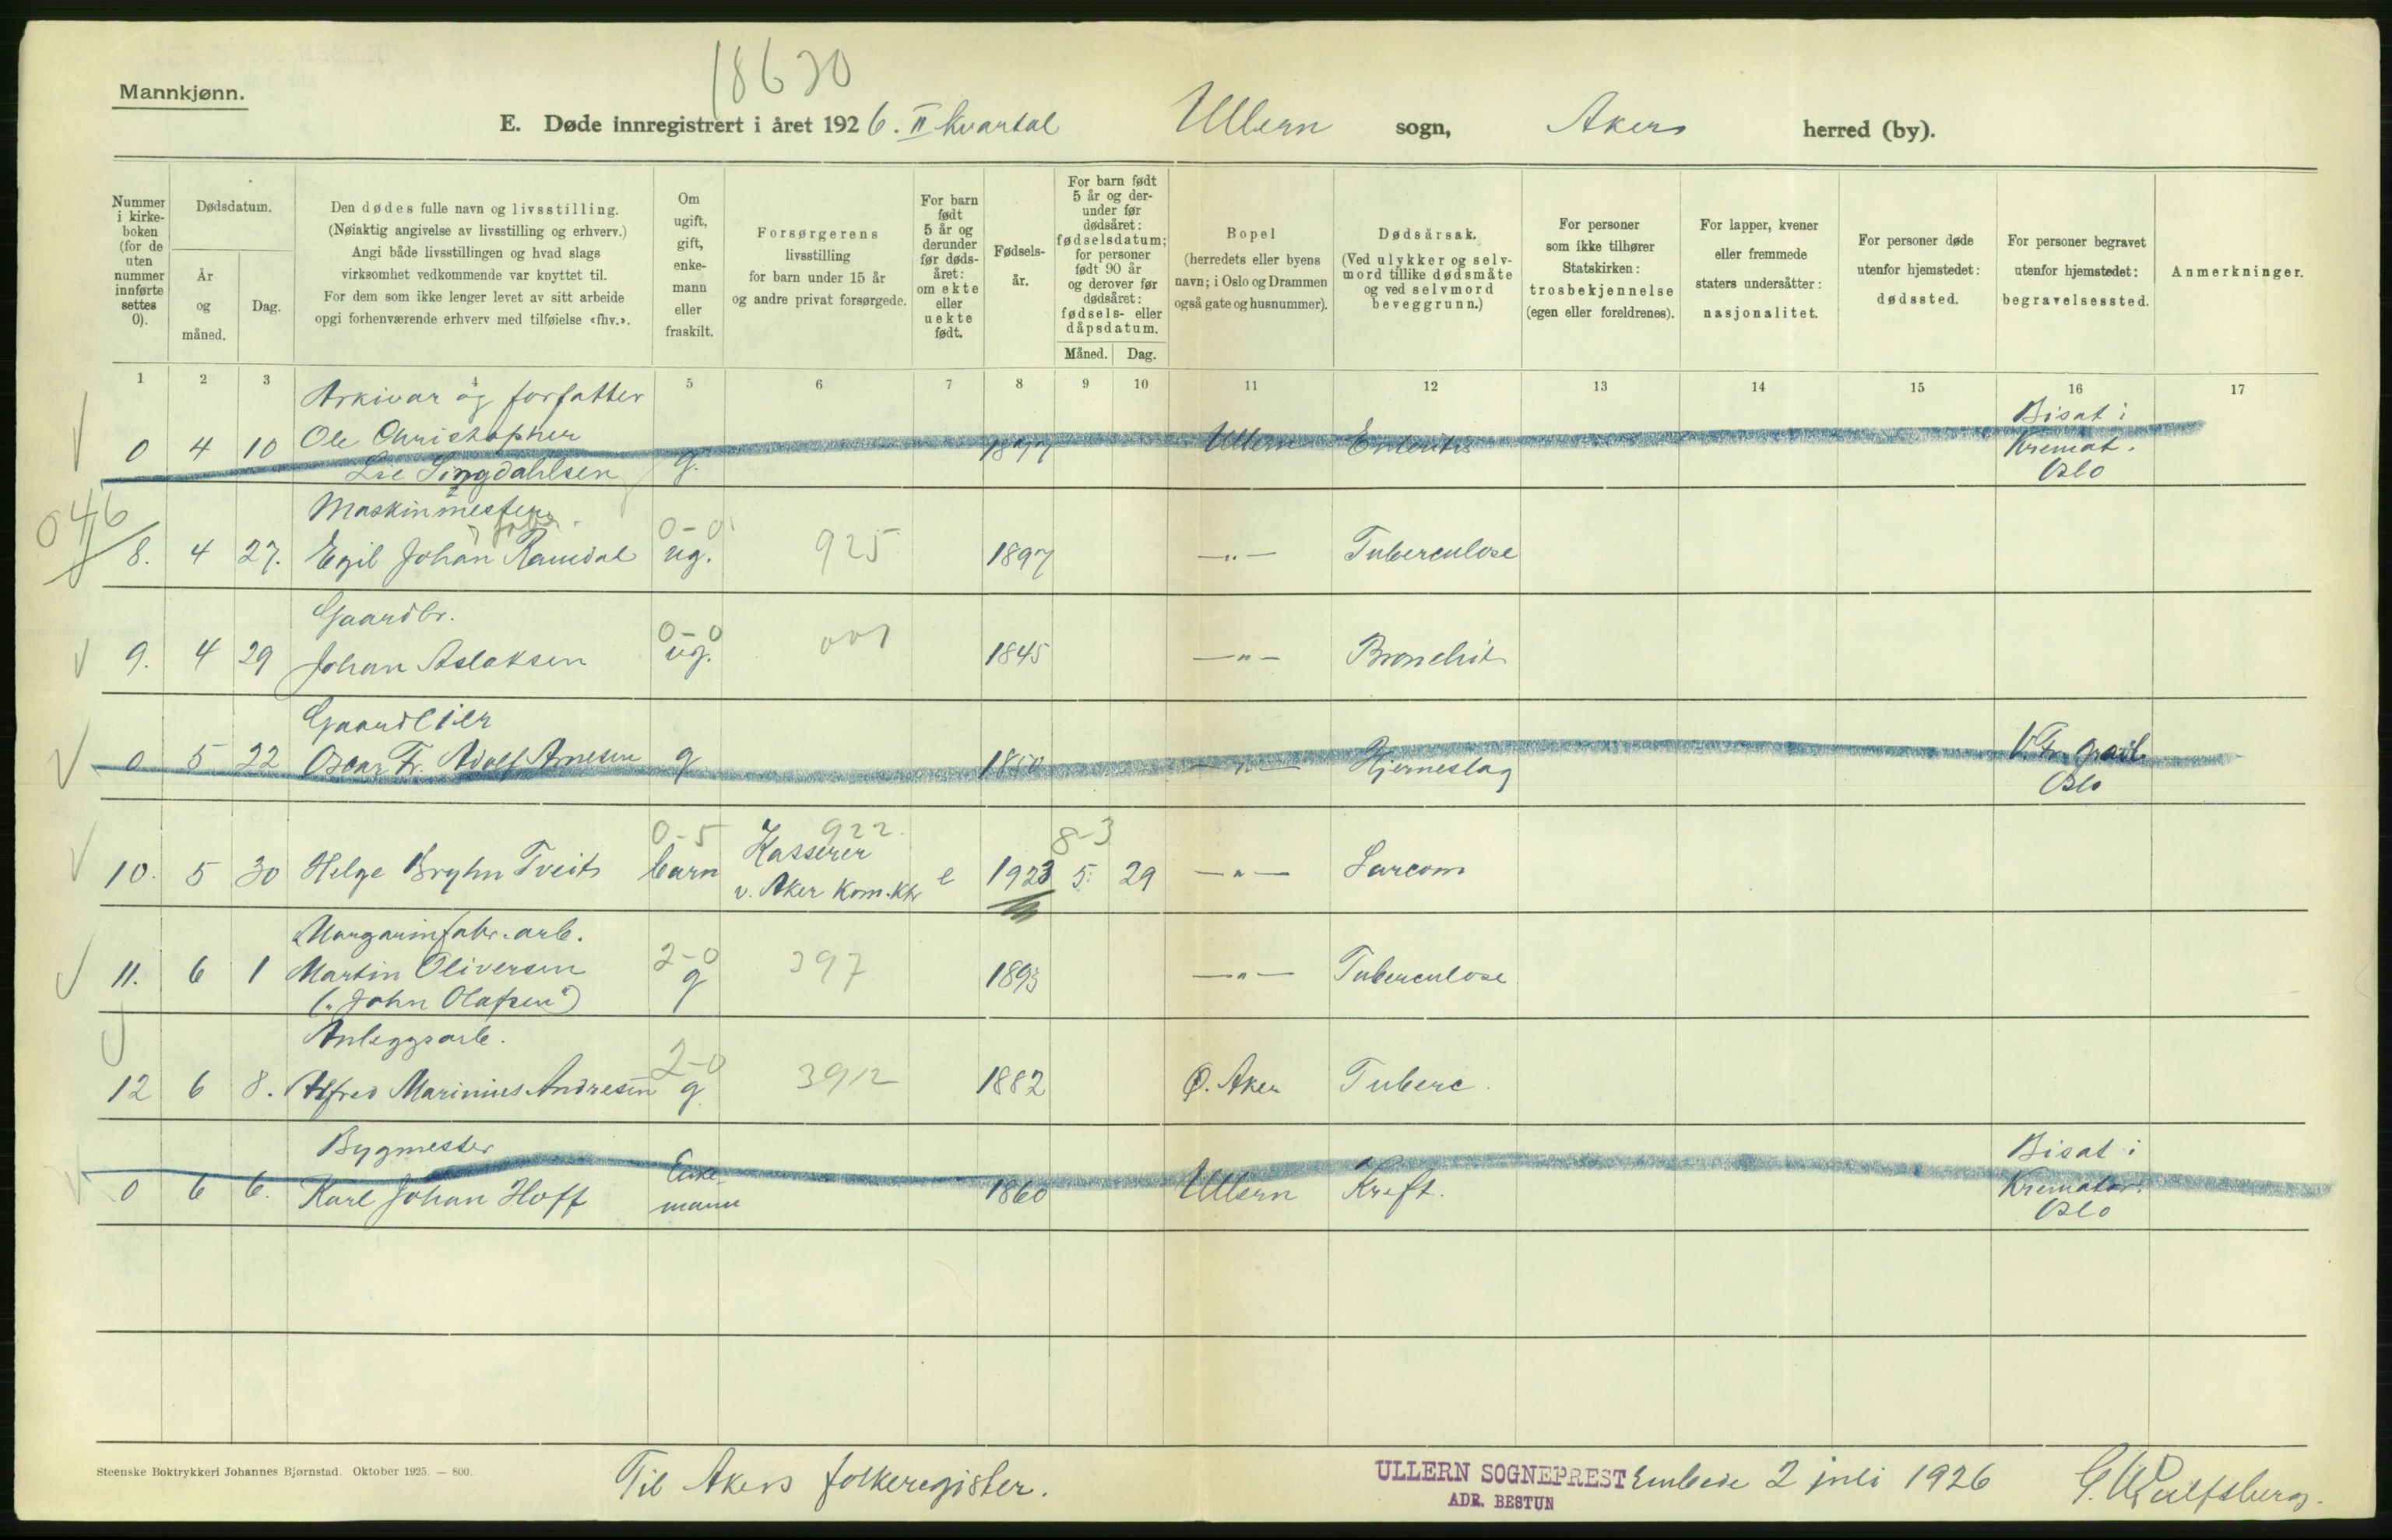 18630
Mannkjønn.
E. Døde innregistrert i året 1926. II kvartal Ullern sogn, Akers herred (by).
Nummer i kirkeboken (for de uten nummer innførte settes 0).
Dødsdatum.
År og måned.
Dag.
Den dødes fulle navn og livsstilling.
(Nøiaktig angivelse av livsstilling og erhverv.)
Angi både livsstillingen og hvad slags
virksomhet vedkommende var knyttet til.
For dem som ikke lenger levet av sitt arbeide
opgi forhenværende erhverv med tilføielse «fhv.».
Om ugift, gift, enkemann eller fraskilt.
Forsørgerens
livsstilling
for barn under 15 år
og andre privat forsørgede.
For barn født 5 år og derunder før dødsåret: om ekte eller uekte født.
Fødselsår.
For barn født 5 år og derunder før dødsåret: fødselsdatum; for personer født 90 år og derover før dødsåret: fødsels- eller dåpsdatum.
Måned. Dag.
Bopel
(herredets eller byens
navn; i Oslo og Drammen
også gate og husnummer).
Dødsårsak.
(Ved ulykker og selvmord tillike dødsmåte
og ved selvmord
beveggrunn.)
For personer
som ikke tilhører
Statskirken:
trosbekjennelse
(egen eller foreldrenes).
For lapper, kvener
eller fremmede
staters undersåtter:
nasjonalitet.
For personer døde
utenfor hjemstedet:
dødssted.
For personer begravet
utenfor hjemstedet:
begravelsessted.
Anmerkninger.
1 2 3 4 5 6 7 8 9 10 11 12 13 14 15 16 17
Arkivar og forfatter
0 4 10 Ole Christopher
Lie Singdahlsen g. 1877 Ullern Enteritis Bisat i
Kremat.
Oslo
046
Maskinmester
8. 4 27. Egil Johan Ramdal 0-0 ug. 925 1897 —"— Tuberculose
Gaardbr.
9. 4 29 Johan Aslaksen 0-0 ug. 001 1845 —"— Bronchit
Gaardeier
0 5 22 Oscar Fr. Adolf Arnesen g 1850 —"— Hjerneslag V. Fr. gravl.
Oslo
0-5 922. 8-3
10. 5 30 Helge Bryhn Tveit barn Kasserer
v. Aker Kom.Kk e 1923 5. 29 —"— Sarcom
Margarinfabr.arb.
11. 6 1 Martin Oliversen 2-0 g 397 1893 —"— Tuberculose
("John Olafsen")
Anleggsarb.
12 6 8. Alfred Marinius Andresen 2-0 g 3912 1882 Ø. Aker Tuberc.
Bygmester
0 6 6. Karl Johan Hoff Enke-
mann 1860 Ullern Kreft. Bisat i
Kremator.
Oslo
Steenske Boktrykkeri Johannes Bjørnstad. Oktober 1925. — 800.
Til Akers folkeregister.
ULLERN SOGNEPREST Embede 2 juli 1926
ADR. BESTUN